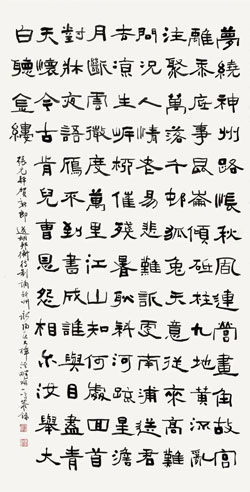 夢繞神州路悵秋風連營畫角故宮
離黍底事崑崙傾砥柱九地黃流亂
注聚萬落千村狐兔天意從來高難
問況人情老易悲難訴更南浦送君
去涼生岸柳催殘暑耿斜河疏星澹
月斷雲微度萬里江山知何處回首
對牀夜語雁不到書成誰與目盡青
天懷今古肯兒曹恩怨相尔汝舉大
白聽金縷
張元幹賀新郎 送胡邦衡待制謫新州